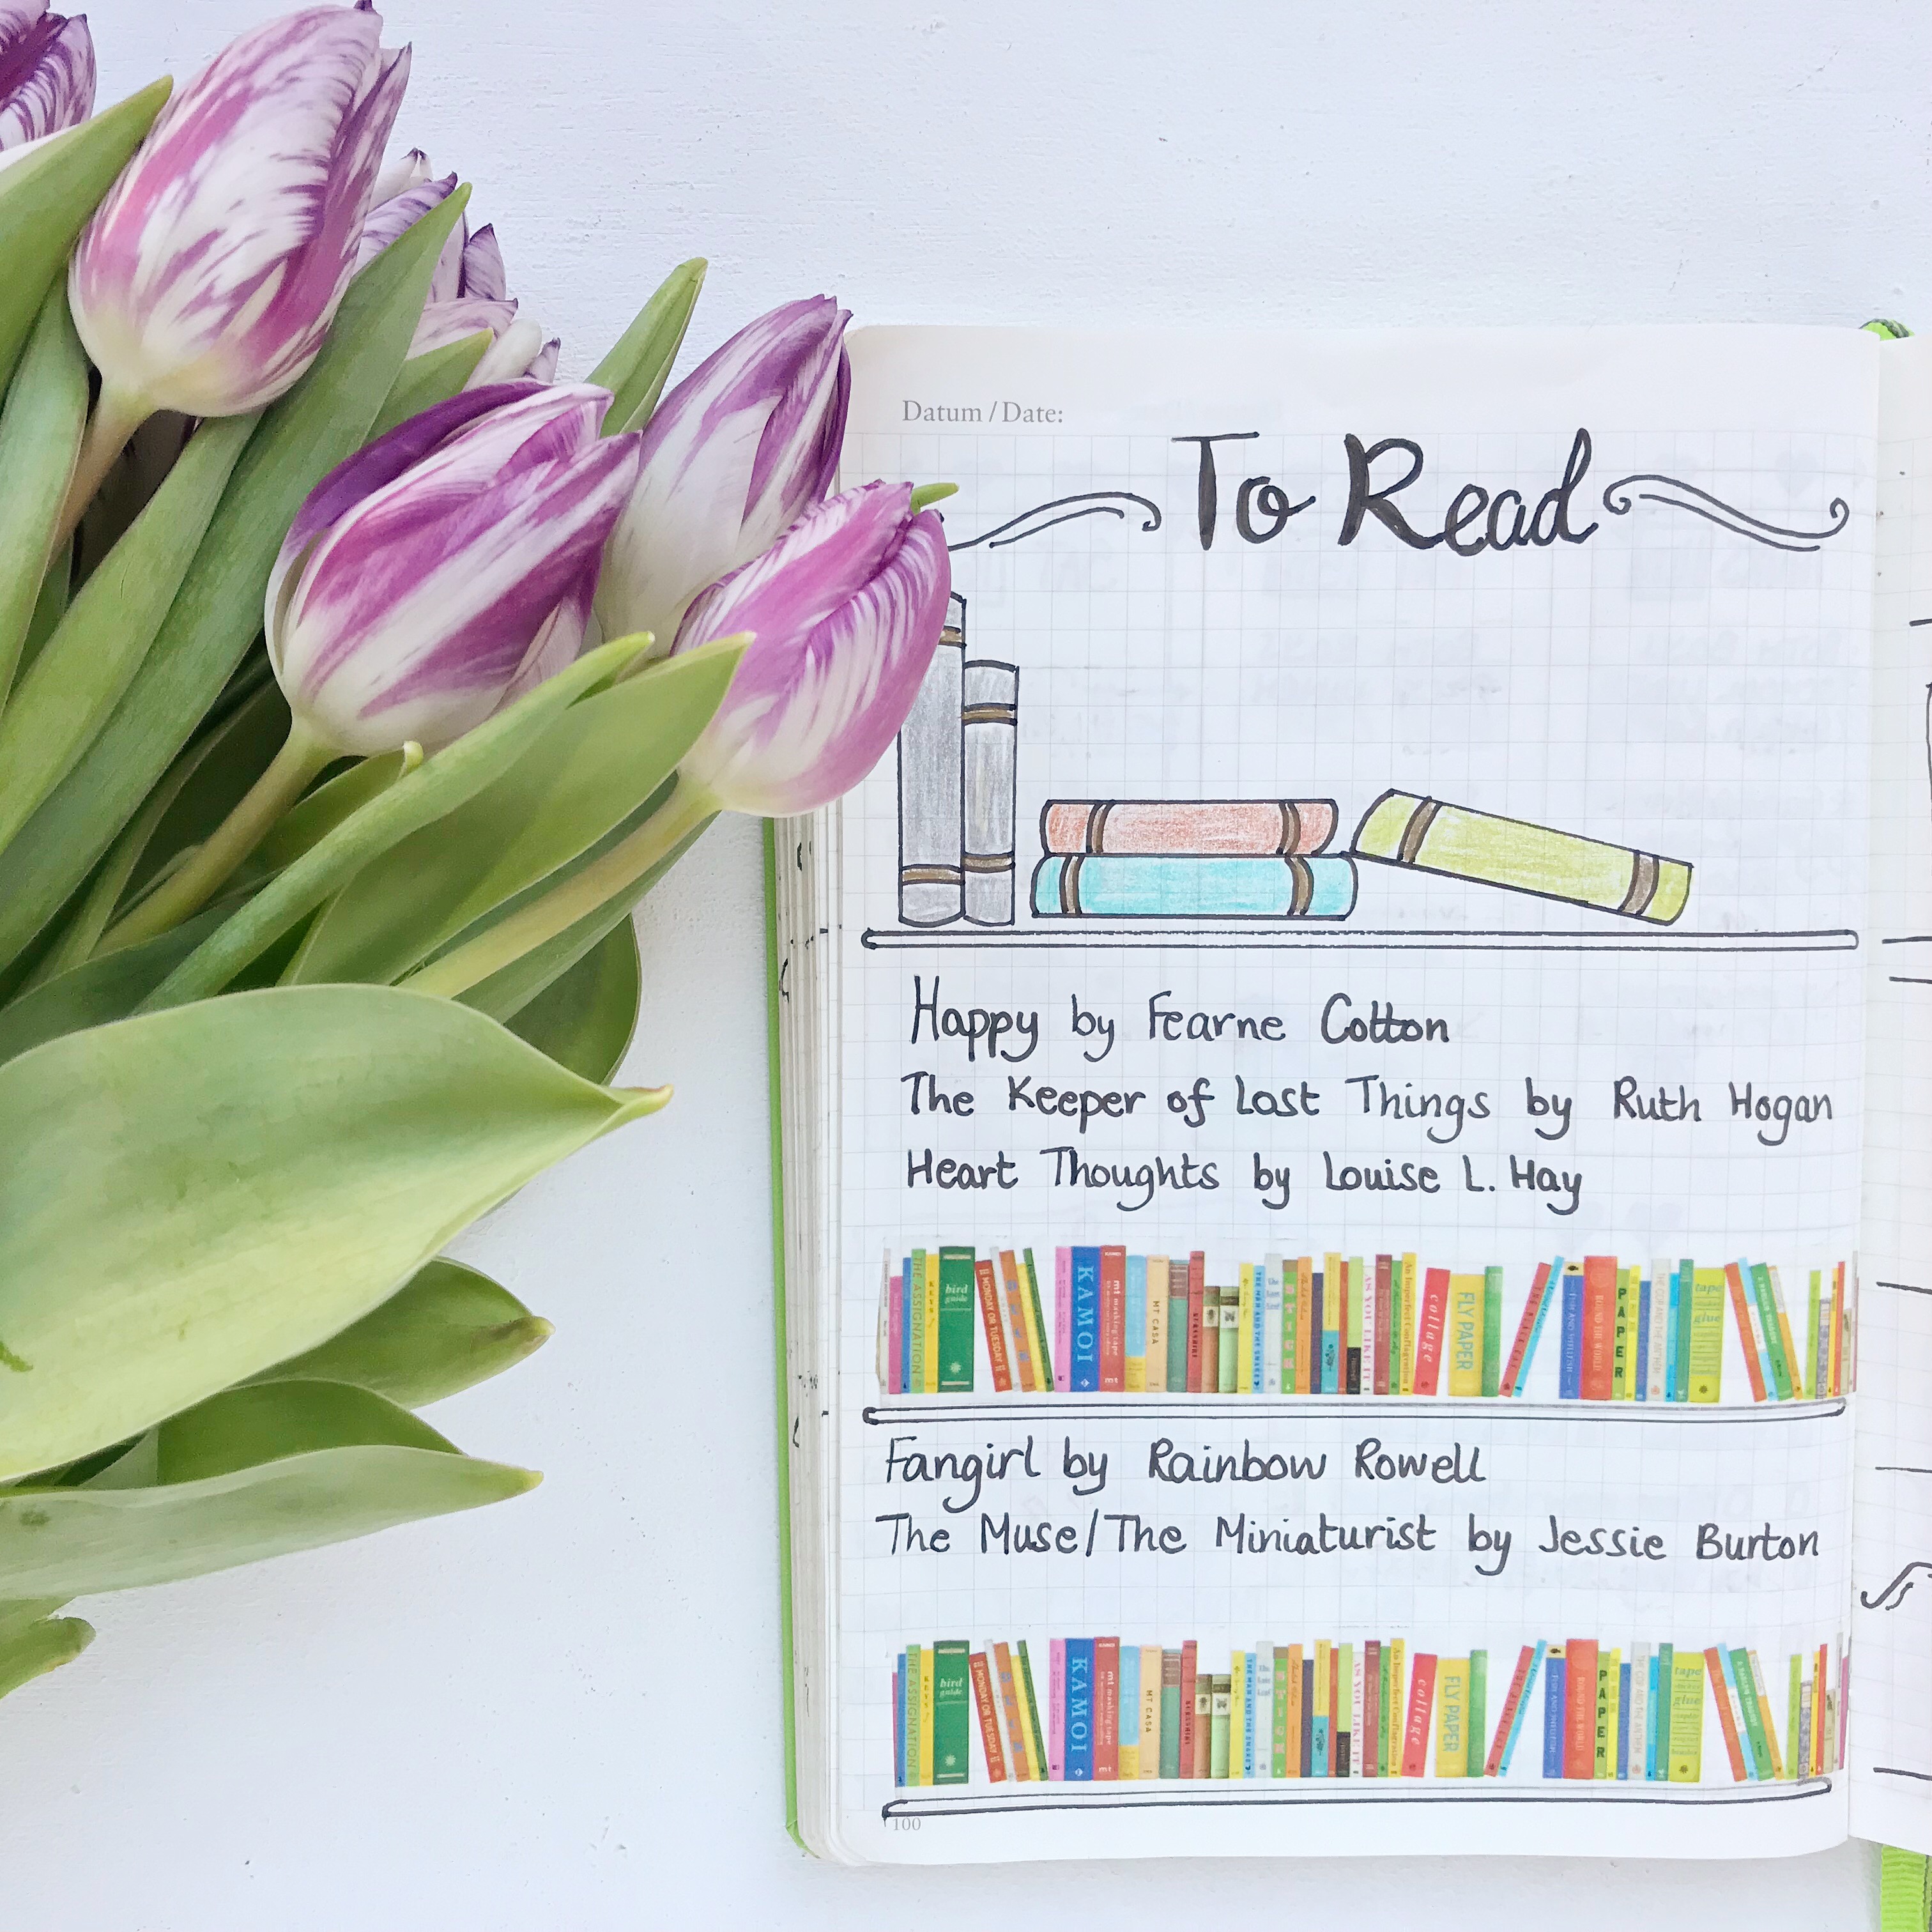 Datum / Date:
To Read
Happy by Fearne Cotton
The Keeper of Lost Things by Ruth Hogan
Heart Thoughts by Louise L. Hay
THE ASSIGNATION
KEYS
bird guide
MONDAY OR TUESDAY
KAMOI
mt masking tape
mt
MT CASA
THE MAN AND THE SNAKE
AS YOU LIKE IT
An Imperfect Conflagration
collage
FLY PAPER
ROUND THE WORLD
PAPER
tape
glue
Fangirl by Rainbow Rowell
The Muse/The Miniaturist by Jessie Burton
THE ASSIGNATION
KEYS
bird guide
MONDAY OR TUESDAY
KAMOI
mt masking tape
mt
MT CASA
THE MAN AND THE SNAKE
AS YOU LIKE IT
An Imperfect Conflagration
collage
FLY PAPER
ROUND THE WORLD
PAPER
tape
glue
100